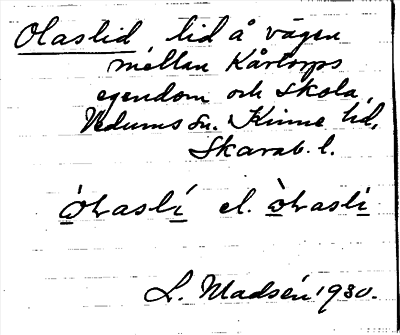 Olaslid lid å vägen
mellan Kårtorps
egendom och skola,
Vedums sn. Kinne hd,
Skarab. l.
ò̲ƚaslí̲ el. ò̲ƚaslì̲
L. Madsén 1930.